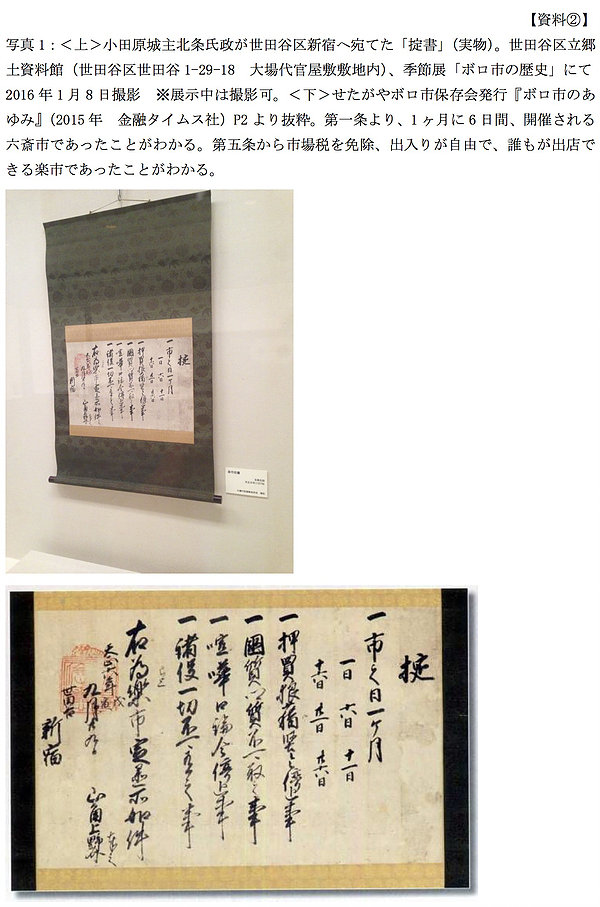 【資料②】
写真1：＜上＞小田原城主北条氏政が世田谷区新宿へ宛てた「掟書」（実物）。世田谷区立郷
土資料館（世田谷区世田谷1-29-18　大場代官屋敷敷地内）、季節展「ボロ市の歴史」にて
2016年1月8日撮影　※展示中は撮影可。＜下＞せたがやボロ市保存会発行『ボロ市のあ
ゆみ』（2015年　金融タイムス社）P2より抜粋。第一条より、1ヶ月に6日間、開催される
六斎市であったことがわかる。第五条から市場税を免除、出入りが自由で、誰もが出店で
きる楽市であったことがわかる。
掟
一市之日一ヶ月
一日　六日　十一日
十六日　廿一日　廿六日
一押買狼藉堅令停止事
一國質郷質不可取之事
一喧嘩口論令停止事
一諸役一切不可有之事
右為楽市定置所如件
天正六年戊寅
九月廿九日　山角上野介　奉之
世田谷
新宿